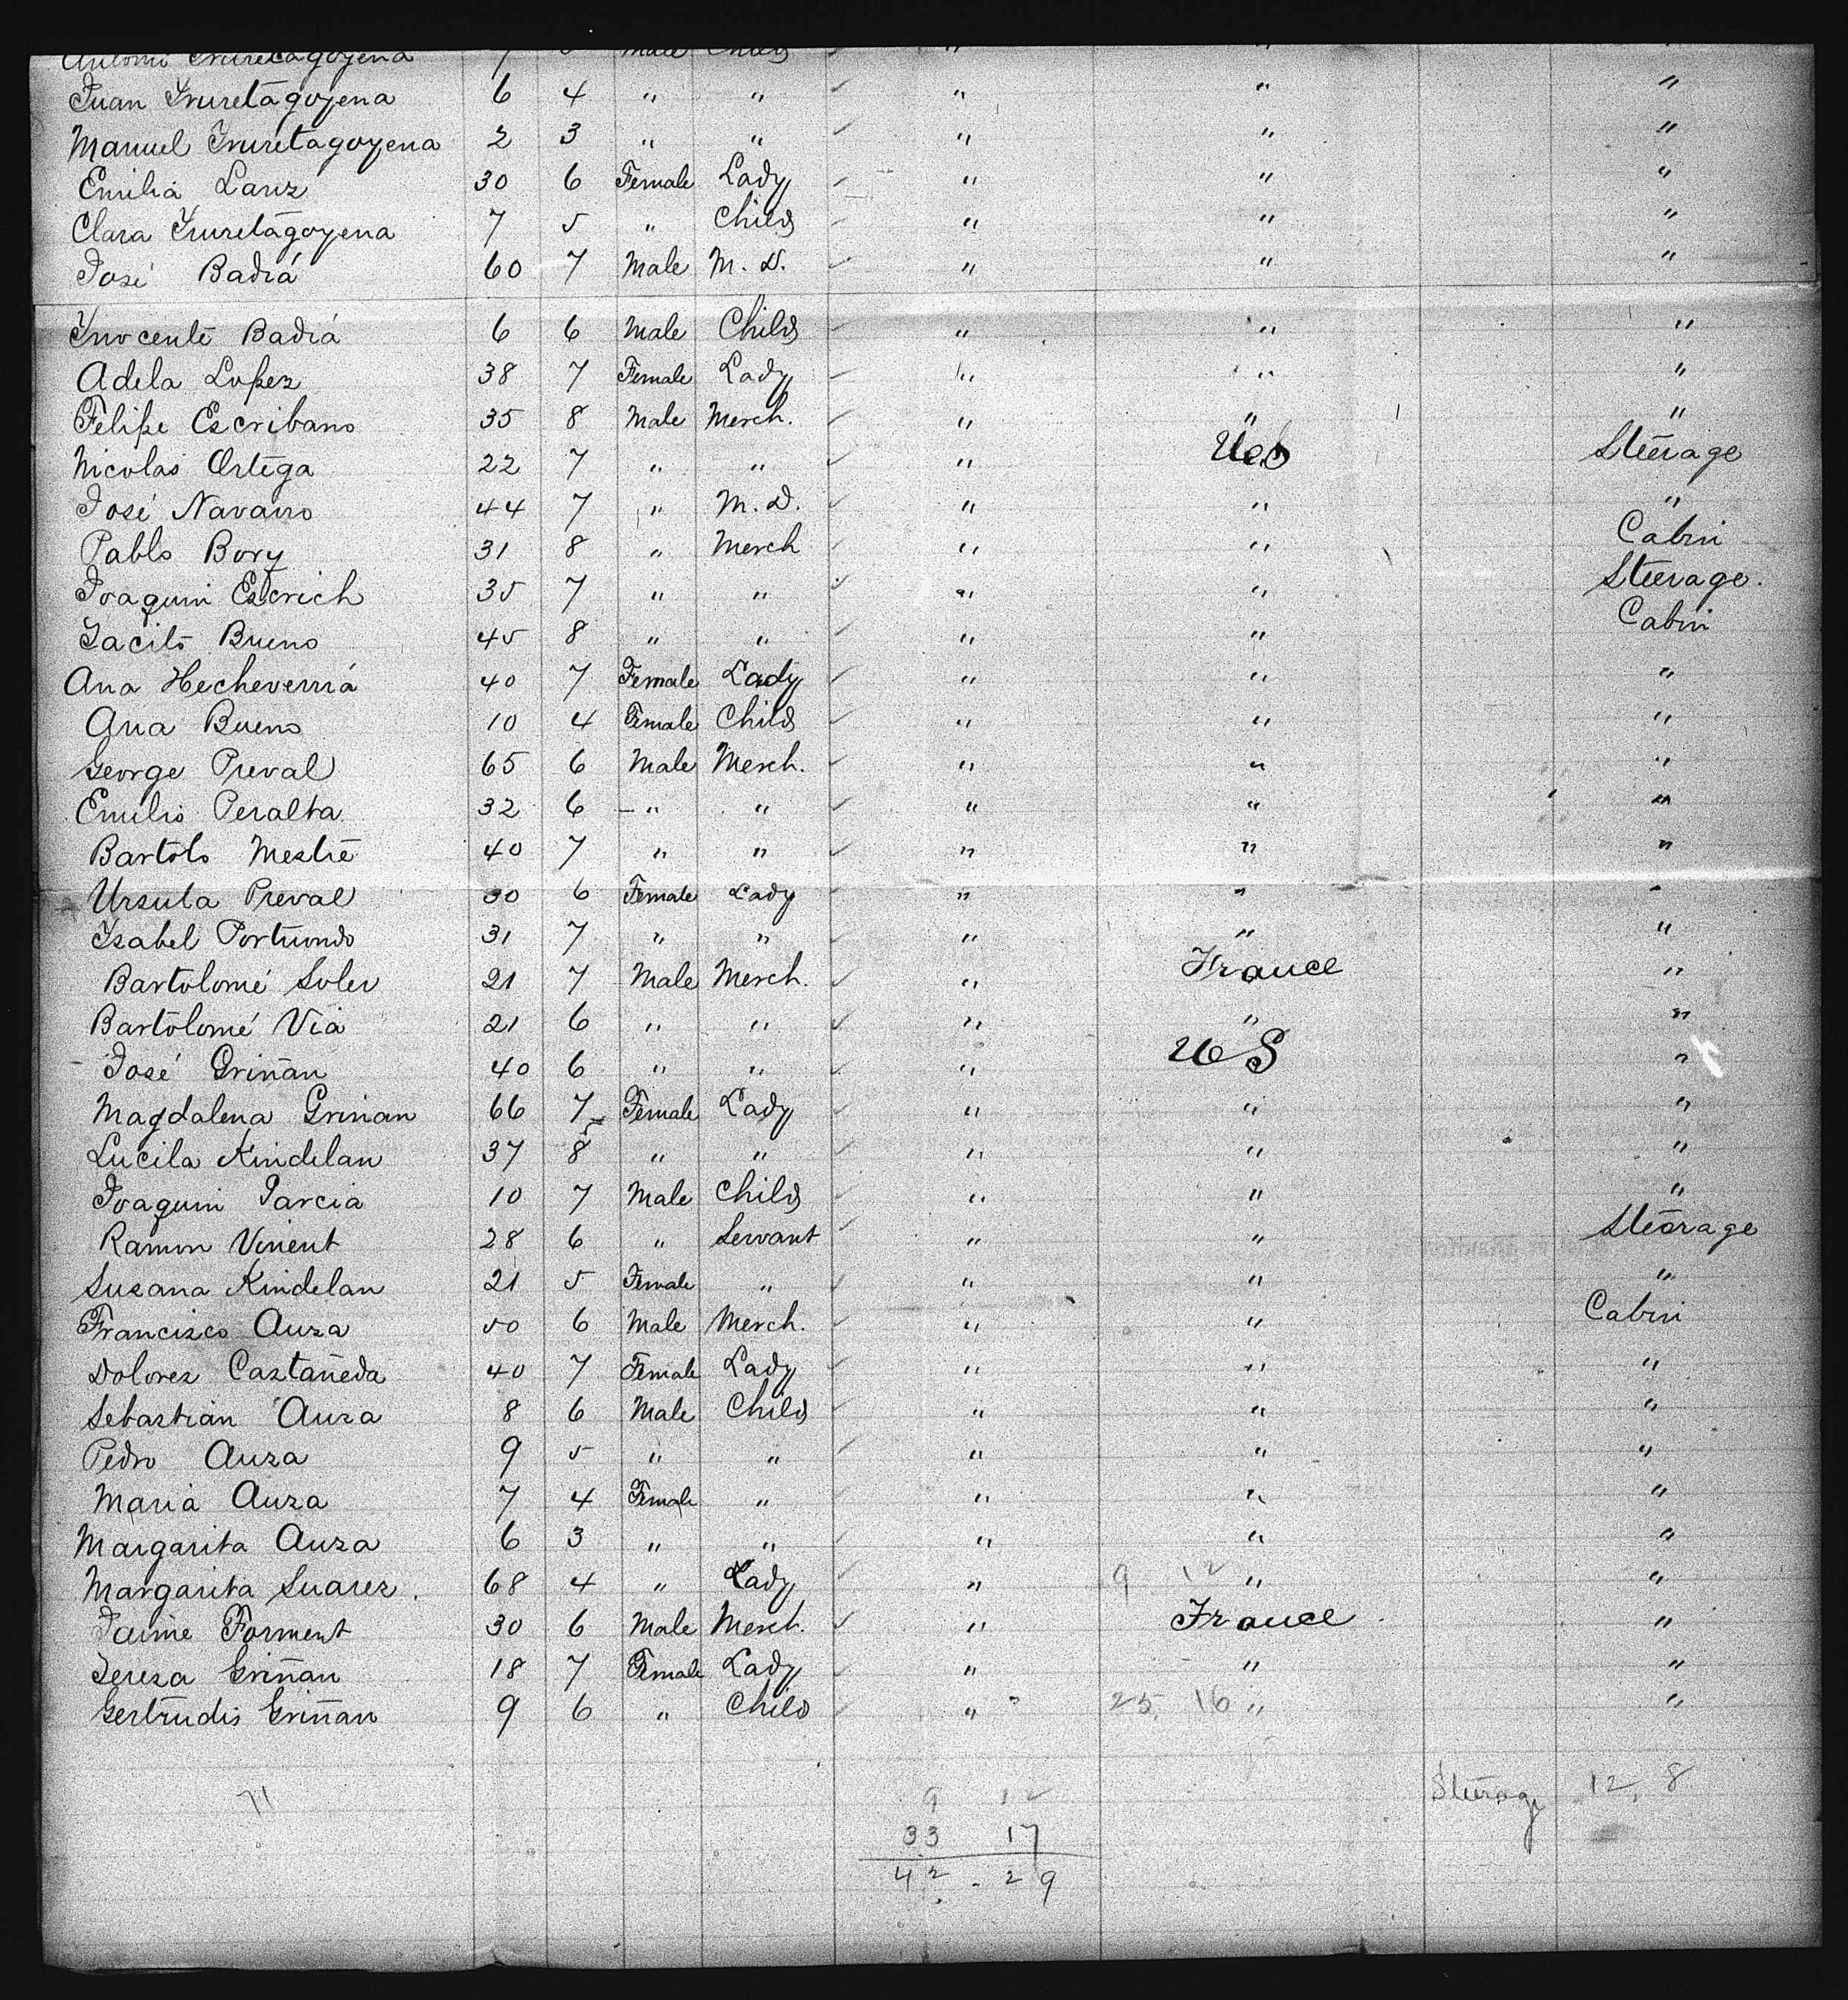 Antonio Yruretagoyena 7 Male Child " " "
Juan Yruretagoyena 6 4 " " " " "
Manuel Yruretagoyena 2 3 " " " " "
Emilia Lanz 30 6 Female Lady " " "
Clara Yruretagoyena 7 5 " Child " " "
José Badiá 60 7 Male M. D. " " "
Ynocente Badiá 6 6 Male Child " " "
Adela Lopez 38 7 Female Lady " " "
Felipe Escribano 35 8 Male Merch. " " "
Nicolas Ortega 22 7 " " " U.S Steerage
José Navarro 44 7 " M. D. " " "
Pablo Bory 31 8 " Merch " " Cabin
Joaquin Escrich 35 7 " " " " Steerage.
Tacito Bueno 45 8 " " " " Cabin
Ana Hecheverria 40 7 Female Lady " " "
Ana Bueno 10 4 Female Child " " "
George Preval 65 6 Male Merch. " " "
Emilio Peralta 32 6 " " " " "
Bartolo Mestre 40 7 " " " " "
Ursula Preval 30 6 Female Lady " " "
Ysabel Portuondo 31 7 " " " " "
Bartolomé Soler 21 7 Male Merch. " France "
Bartolomé Via 21 6 " " " " "
José Griñan 40 6 " " " U S "
Magdalena Griñan 66 7 Female Lady " " "
Lucila Kindelan 37 8 " " " " "
Joaquin Garcia 10 7 Male Child " " "
Ramon Vinent 28 6 " Servant " " Steerage
Susana Kindelan 21 5 Female " " " "
Francisco Auza 50 6 Male Merch. " " Cabin
Dolores Castañeda 40 7 Female Lady " " "
Sebastian Auza 8 6 Male Child " " "
Pedro Auza 9 5 " " " " "
Maria Auza 7 4 Female " " " "
Margarita Auza 6 3 " " " " "
Margarita Suarez. 68 4 " Lady " 9 12 " "
Jaime Forment 30 6 Male Merch. " France "
Teresa Griñan 18 7 Female Lady " " "
Gertrudis Griñan 9 6 " Child " 25, 16 " "
71 9 12 Steerage 12, 8
33 17
42 - 29